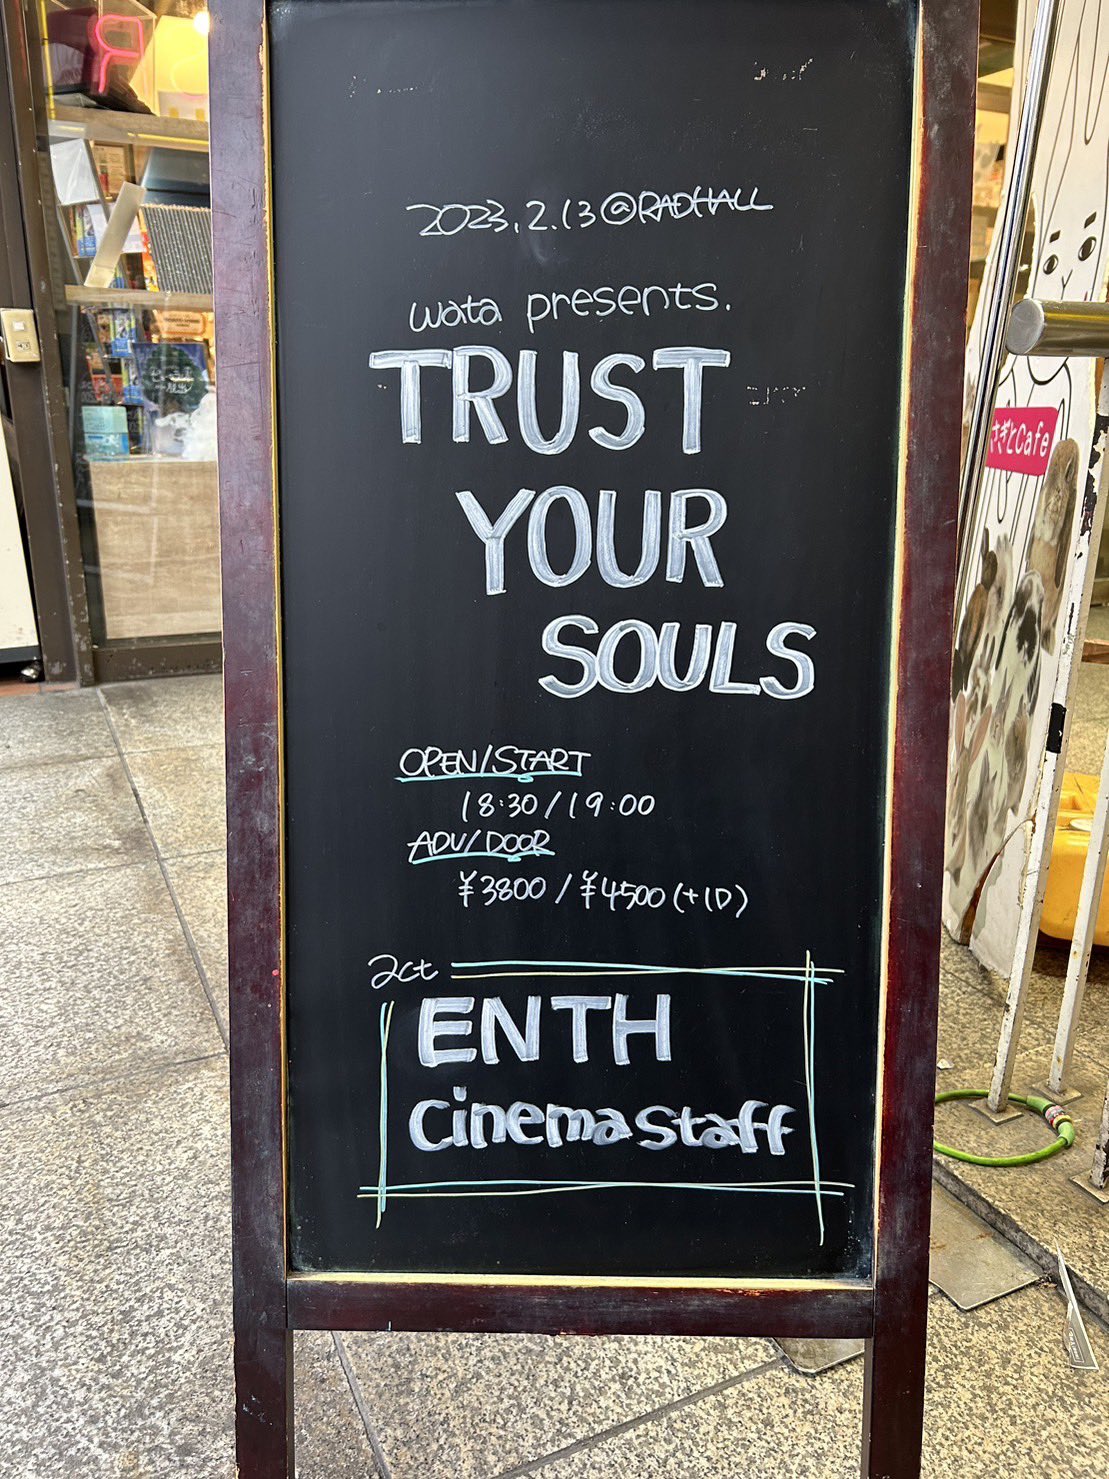 2023.2.13@RADHALL
wata presents.
TRUST
YOUR
SOULS
OPEN/START
18:30/19:00
ADV/DOOR
¥3800/¥4500(+1D)
2ct
ENTH
cinema staff
さぎとCafe